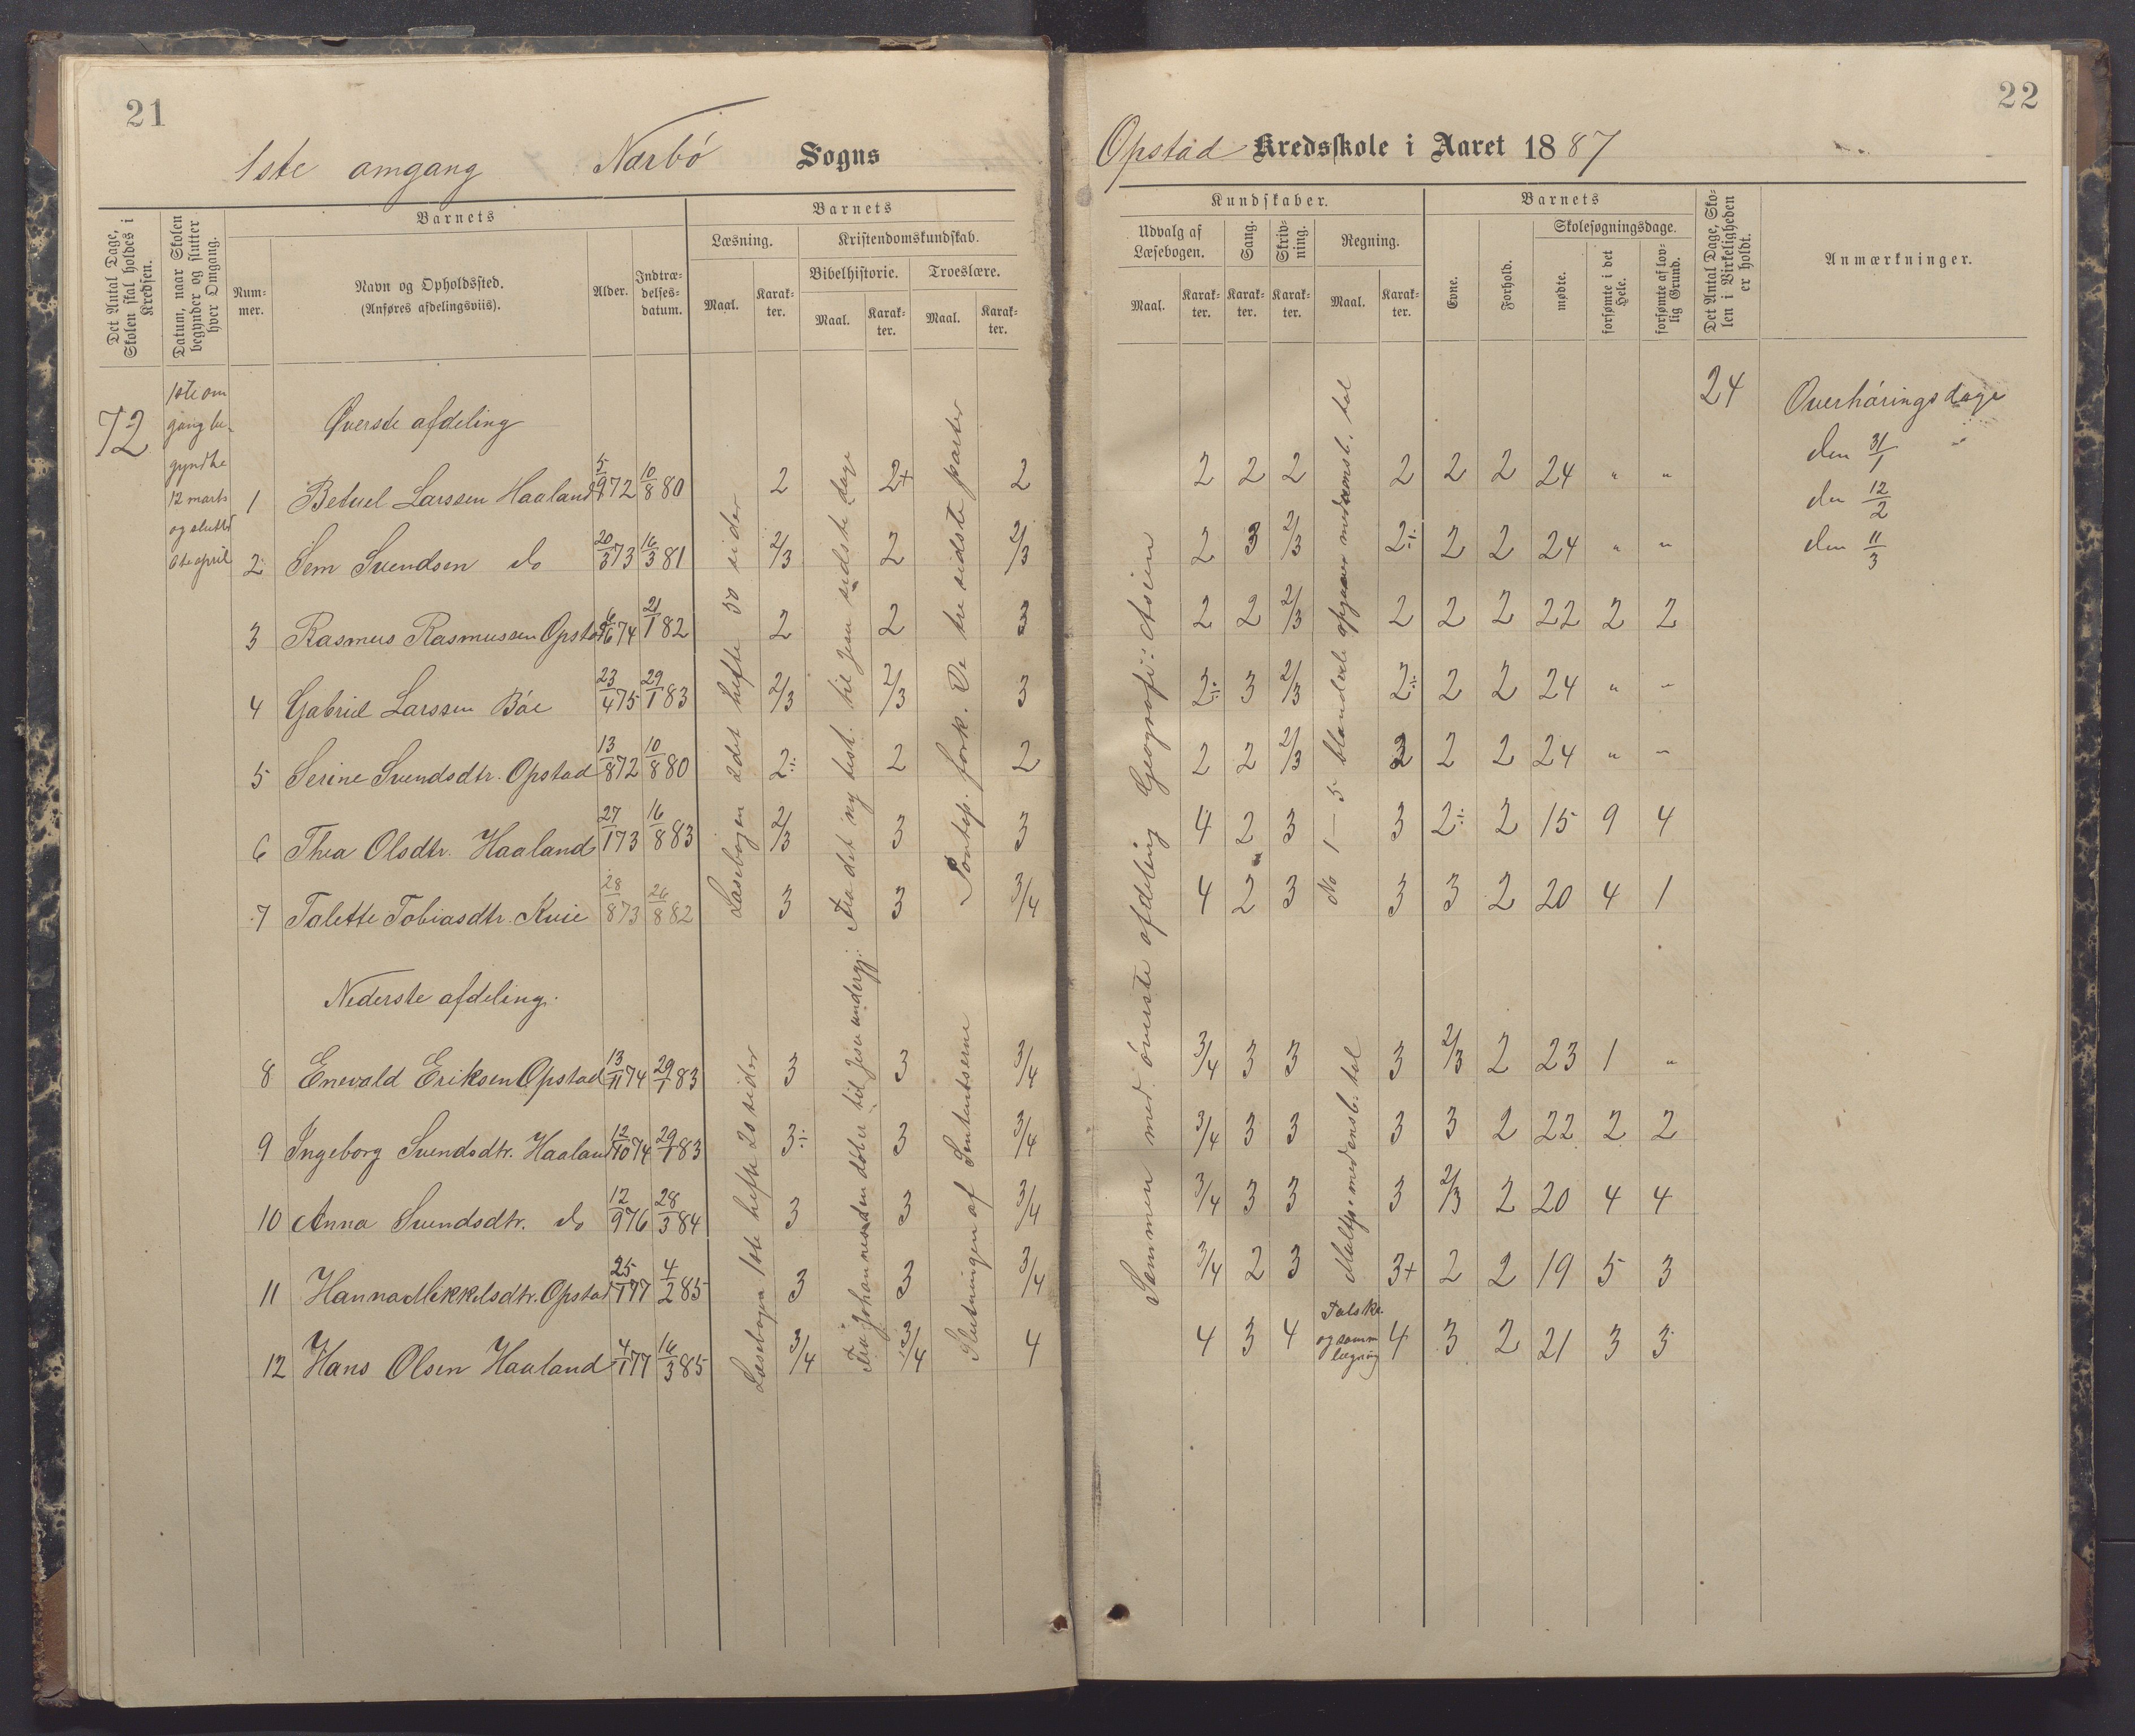 21
1ste omgang Nærbö Sogns
Det Antal Dage, Skolen skal holdes i Kredsen.
Datum, naar Skolen begynder og slutter hver Omgang.
Barnets
Nummer.
Navn og Opholdssted.
(Anføres afdelingsviis).
Alder.
Indtrædelsesdatum.
Barnets
Læsning.
Kristendomskundskab.
Bibelhistorie.
Troeslære.
Maal.
Karakter.
Maal.
Karakter.
Maal.
Karakter.
72
1ste om
gang be-
gyndte
12 marts
og sluttet
6te april
Øverste afdeling
1 Betuel Larssen Haaland 5/9 72 10/8 80 2 2+ 2
2 Sem Svendsen do 20/3 73 16/3 81 2/3 2 2/3
3 Rasmus Rasmussen Opstad 6/6 74 21/1 82 2 2 3
4 Gabriel Larssen Böe 23/4 75 29/1 83 2/3 2/3 3
5 Serine Svendsdtr. Opstad 13/8 72 10/8 80 2÷ 2 2
6 Thea Olsdtr. Haaland 27/1 73 16/8 83 2/3 3 3
7 Talette Tobiasdtr. Kvie 28/8 73 26/8 82 3 3 3/4
Læsebogen 2det hefte 50 sider
Fra det ny test. til Jesu sidste dage
Pontop. fork. De tre sidste parter
Nederste afdeling.
8 Enevald Eriksen Opstad 13/11 74 29/1 83 3 3 3/4
9 Ingeborg Svendsdtr. Haaland 12/10 74 29/1 83 3÷ 3 3/4
10 Anna Svendsdtr. do 12/9 76 28/3 84 3 3 3/4
11 Hanna Mikkelsdtr. Opstad 25/1 77 4/2 85 3 3 3/4
12 Hans Olsen Haaland 4/1 77 16/3 85 3/4 3/4 4
Læsebogen 1ste hefte 20 sider
Fra Johannes den döber til Jesu undergj.
Slutningen af Sententserne
22
Opstad Kredsskole i Aaret 1887
Kundskaber.
Udvalg af Læsebogen.
Sang.
Skrivning.
Regning.
Maal.
Karakter.
Karakter.
Karakter.
Maal.
Karakter.
Barnets
Evne.
Forhold.
Skolesøgningsdage.
mødte.
forsømte i det Hele.
forsømte af lovlig Grund.
Det Antal Dage, Skolen i Virkeligheden er holdt.
Anmærkninger.
2 2 2 2 2 2 24 " "
2 3 2/3 2÷ 2 2 24 " "
2 2 2/3 2 2 2 22 2 2
2÷ 3 2/3 2÷ 2 2 24 " "
2 2 2/3 2 2 2 24 " "
4 2 3 3 2÷ 2 15 9 4
4 2 3 3 3 2 20 4 1
3/4 3 3 3 2/3 2 23 1 "
3/4 3 3 3 3 2 22 2 2
3/4 3 3 3 2/3 2 20 4 4
3/4 2 3 3+ 2 2 19 5 3
4 3 4 4 3 2 21 3 3
Sammen med överste afdeling Geografi: Asien
No 1 – 5 blandede opgaver med ensb. tal
Multip. med ensb. tal
24
Overhöringsdage
den 31/1
den 12/2
den 11/3